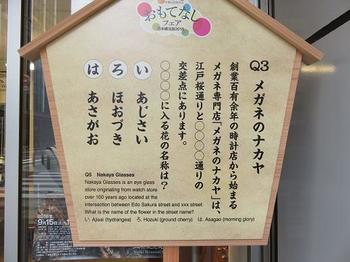 おもてなし
フェア
Q3 メガネのナカヤ
創業百有余年の時計店から始まる
メガネ専門店「メガネのナカヤ」は、
江戸桜通りと○○○○通りの
交差点にあります。
○○○○に入る花の名称は?
い あじさい
ろ ほおづき
は あさがお
Q5 Nakaya Glasses
Nakaya Glasses is an eye glass
store originating from watch store
over 100 years ago located at the
intersection between Edo Sakura street and xxx street
What is the name of the flower in the street name?
い. Ajisai (hydrangea) ろ. Hozuki (ground cherry) は. Asagao (morning glory)